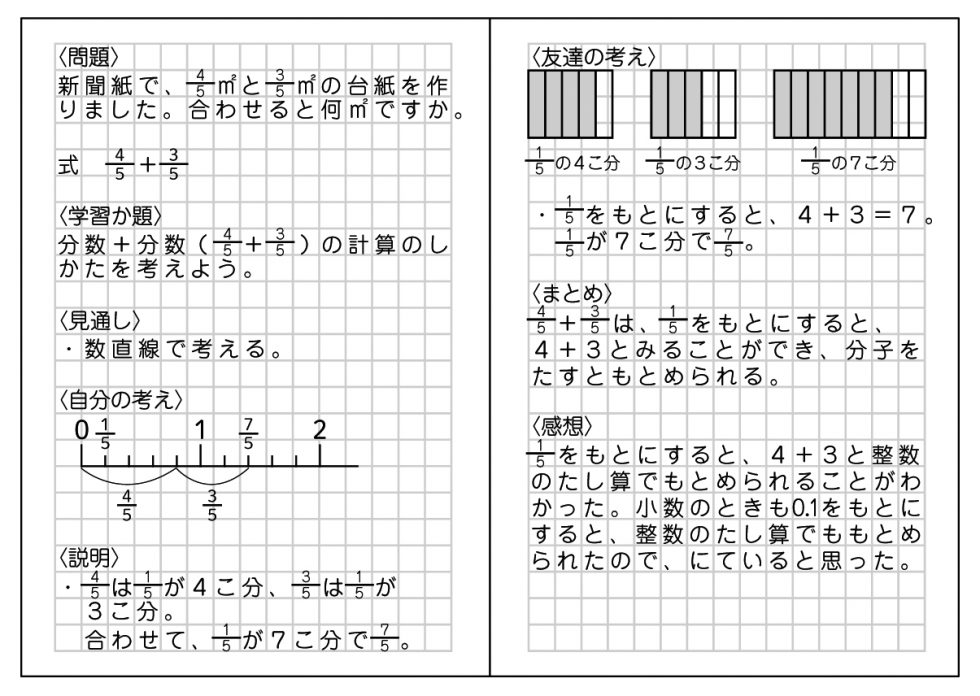 〈問題〉
新聞紙で、4/5㎡と3/5㎡の台紙を作
りました。合わせると何㎡ですか。
式 4/5+3/5
〈学習か題〉
分数+分数(4/5+3/5)の計算のし
かたを考えよう。
〈見通し〉
・数直線で考える。
〈自分の考え〉
0 1/5 1 7/5 2
4/5 3/5
〈説明〉
・4/5は1/5が4こ分、3/5は1/5が
3こ分。
合わせて、1/5が7こ分で7/5。
〈友達の考え〉
1/5の4こ分 1/5の3こ分 1/5の7こ分
・1/5をもとにすると、4+3=7。
1/5が7こ分で7/5。
〈まとめ〉
4/5+3/5は、1/5をもとにすると、
4+3とみることができ、分子を
たすともとめられる。
〈感想〉
1/5をもとにすると、4+3と整数
のたし算でもとめられることがわ
かった。小数のときも0.1をもとに
すると、整数のたし算でももとめ
られたので、にていると思った。